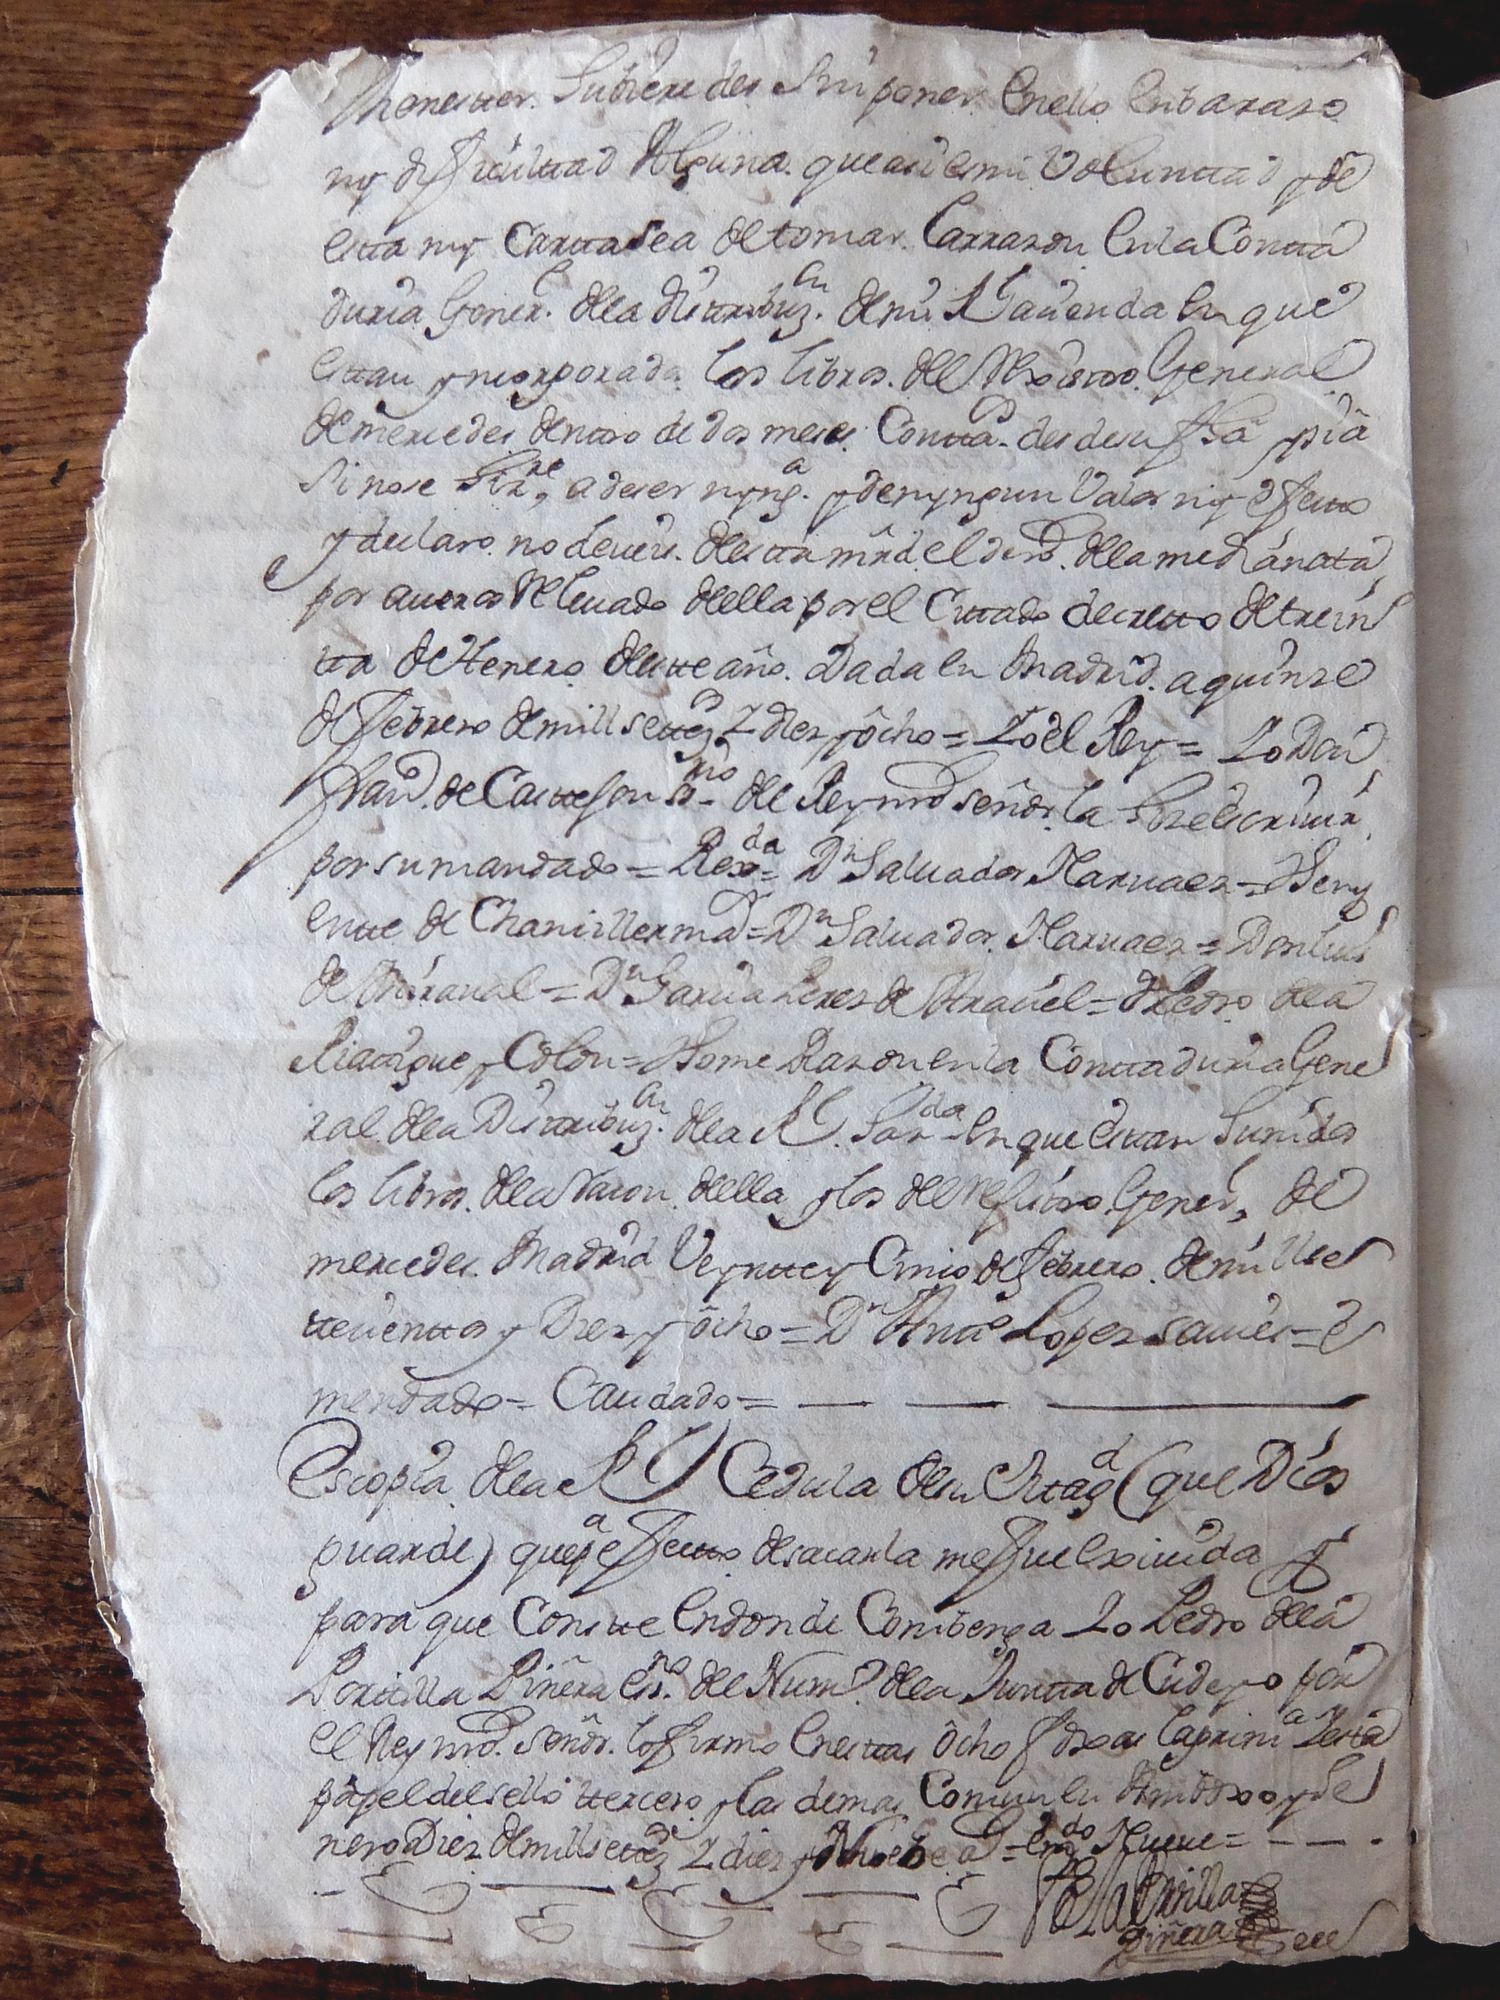 menester hubieredes sin poner en ello enbarazo
ny difficulttad Alguna que asi es mi Voluntad y de
esta my Cartta se a de tomar la rrazon en la Contta
duria Gener.l de la disttribuz.on de mi Rl Hacienda en que
esttan yncorporados los libros del Rexistro General
de mercedes dentro de dos meses Conttados desde su fha y dia
si no se hiz.re a de ser nyng.a y de nyngun Valor ny effecto
y declaro no deveis de esta mrd el dro. de la media anata
por averos Relevado de ella por el Cittado decretto de trein
tta de Henero de este año. Dada en Madrid a quinze
de febrero de mill settez.os y diez y ôcho = Yo el Rey = Yo Don
Fran.co de Castejon Srio del Rey nro señor la hize escrivir
por su mandado = Rex.da = Dn Salvador Narvaez = Theny
entte de Chanziller m.or = Dn Salvador Narvaez = Don Luis
de Miraval = Dn Garcia Perez de Araciel = D. Pedro de la
Riattigue y Colon = Thome Razon en la Conttaduria Gene
ral de la Disttribuz.on de la Rl Haz.da en que esttan Hunidos
los libros de la razon de ella y los del rexistro Gener.l de
mercedes Madrid Veyntte y Cinco de febrero de mill se
tteciettos y Diez y ôcho = Dn Antto Lopez Salces = E
mendado = Caudado =
Es copia de la Rl Cedula de su Mag.d (que Dios
guarde) que p.a effectto de sacarla me fue exivida y
para que Constte en donde Combenga Yo Pedro de la
Porttilla Piñera es.no del Num.o de la Juntta de Cudeyo por
el Rey nro. señor lo firmo en esttas ôcho foxas la prim.a y esta
papel del sello ttercero y las demas Comun en Ambrojo y He
nero Diez de mill settez.os y diez y Nuebe a.s = em.do Nueve =
P.o de la Porttilla
Piñera